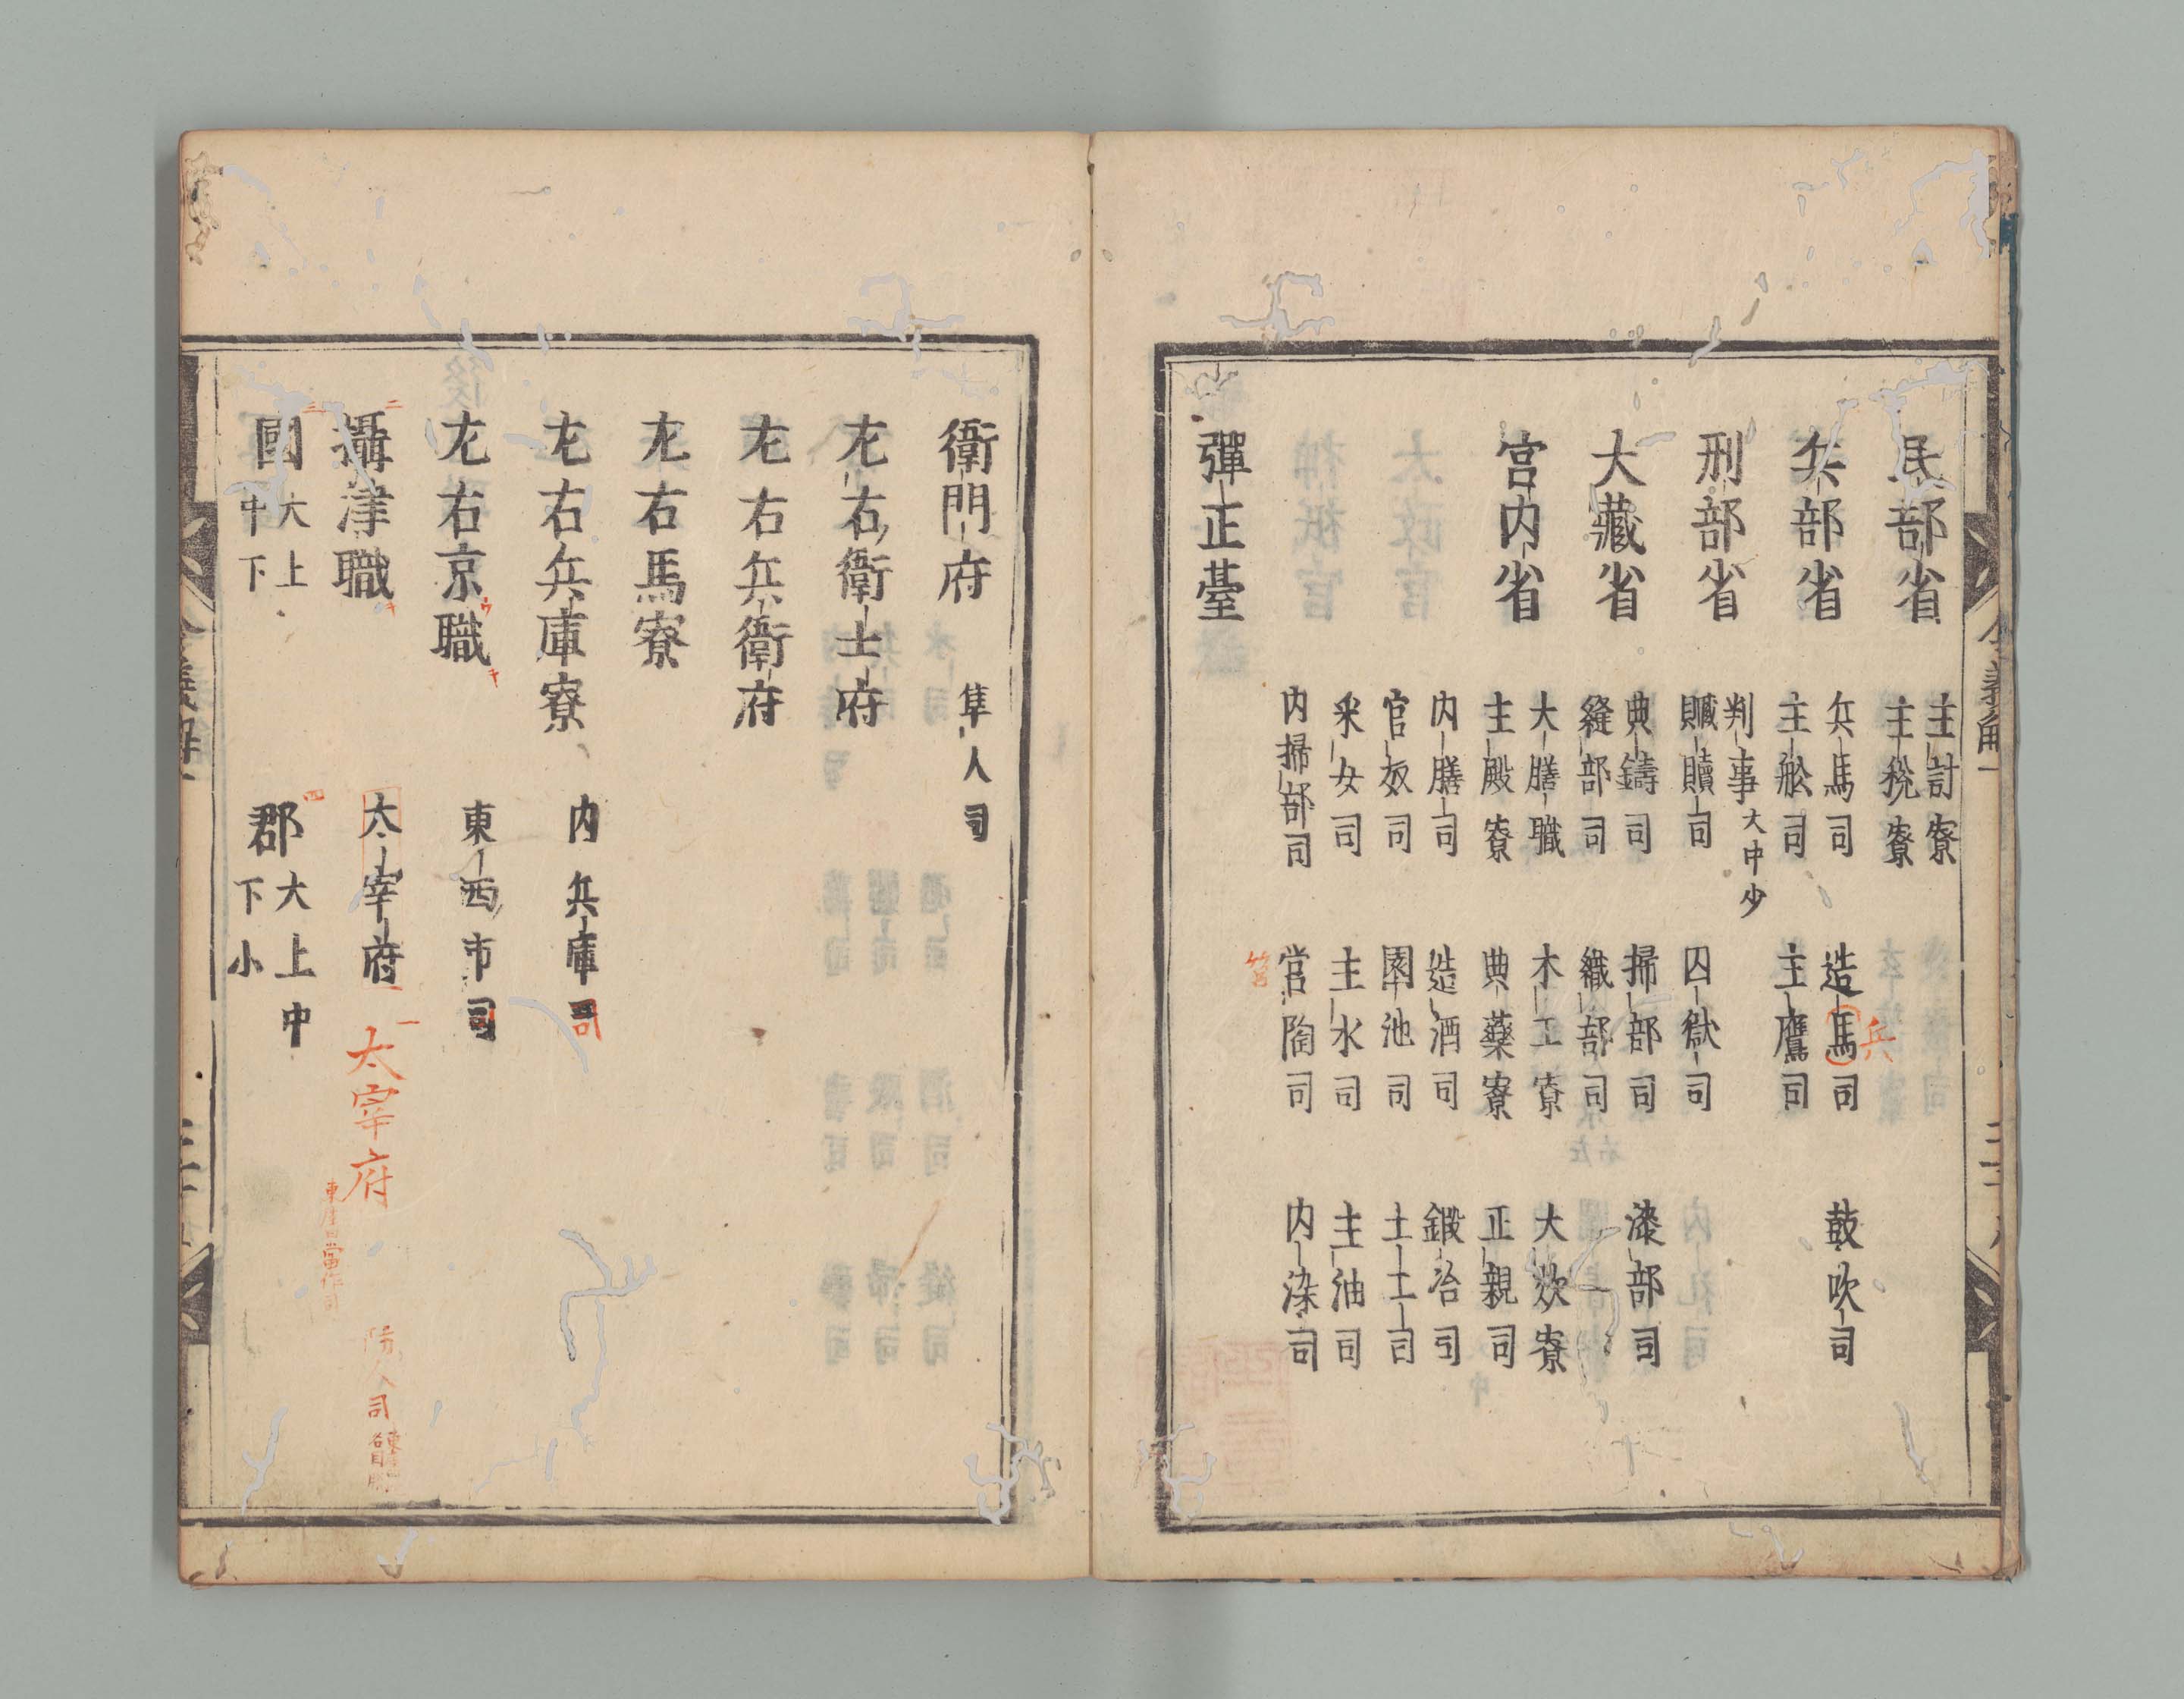 民部省
主計寮
主税寮
兵部省
兵馬司 造馬司 鼓吹司
兵
主舩司 主鷹司
刑部省
判事大中少
贓贖司 囚獄司
大藏省
典鑄司 掃部司 漆部司
縫部司 織部司
宮内省
大膳職 木工寮 大炊寮
主殿寮 典藥寮 正親司
内膳司 造酒司 鍛冶司
官奴司 園池司 土工司
采女司 主水司 主油司
内掃部司 官陶司 内染司
筥
彈正臺
令義解一
衞門府
隼人司
左右衞士府
左右兵衞府
左右馬寮
左右兵庫寮 内兵庫司
左右京職 東西市司
攝津職 太宰府
一太宰府
防人司
國 大上中下
郡 大上中下小